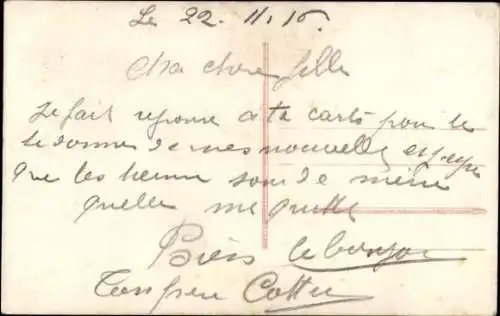 Le 22. 11. 16.
Cha chere fille
Je fait reponse a ta carte pour te
te donner de mes nouvelle et j'espere
que les sont de même
quelle me quitte
Bien le bonjour
Ton pere Cottu